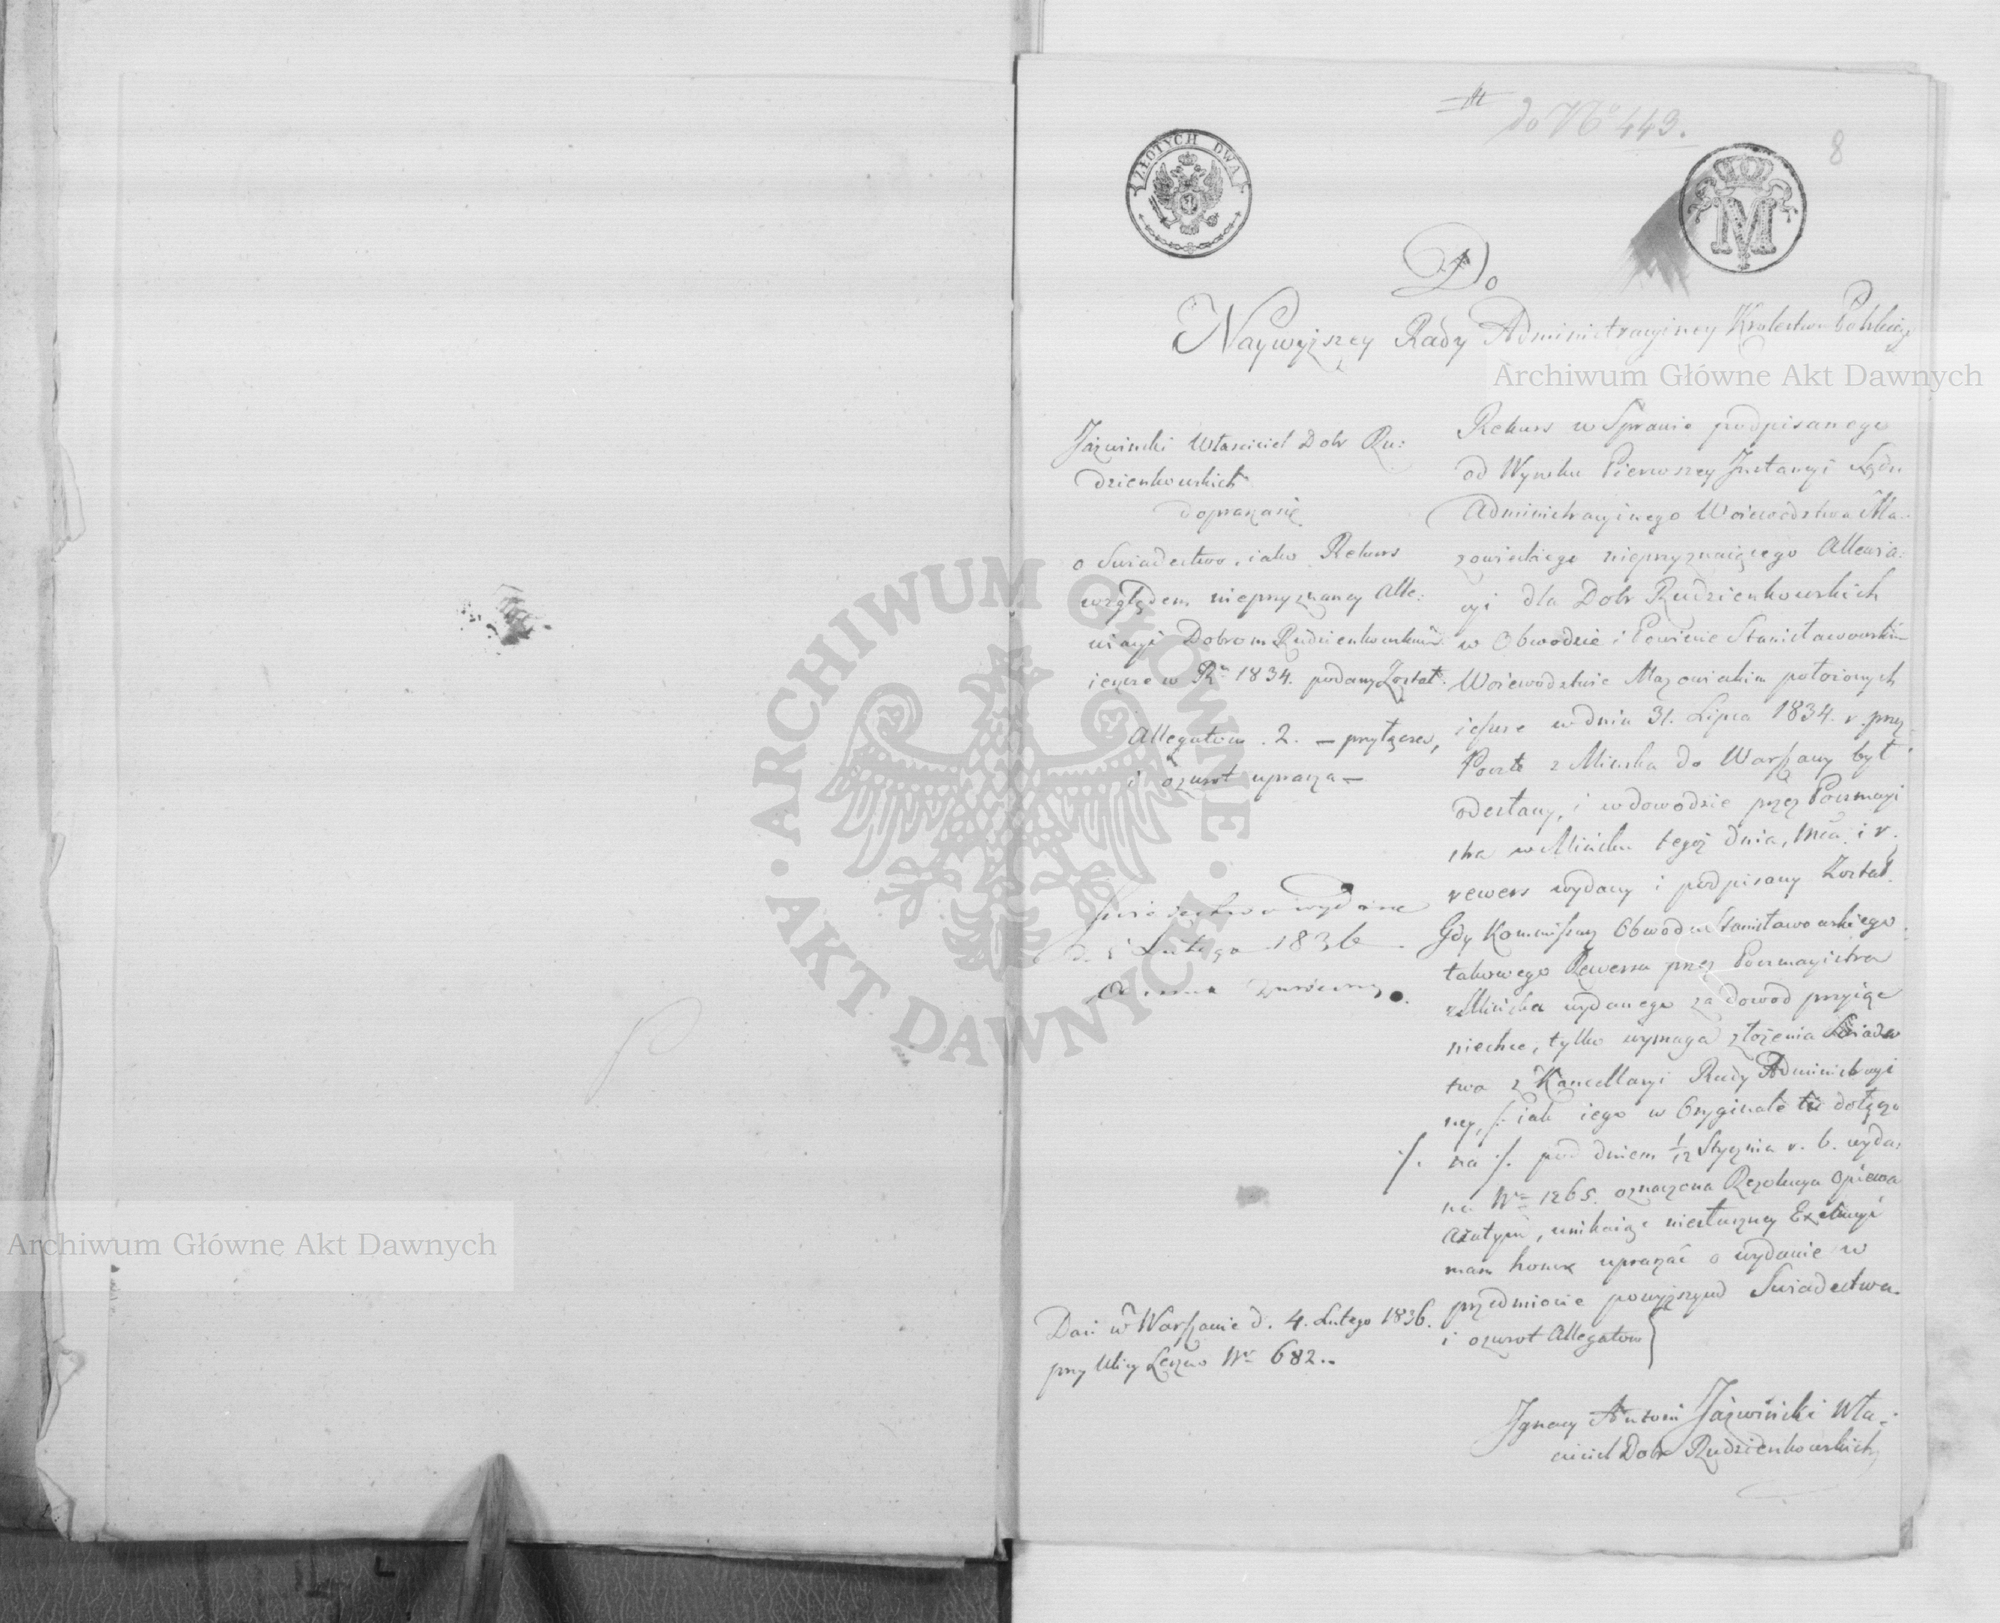 do No 443.
8
ZŁOTYCH DWA
M
Do
Naywyższey Rady Administracyiney Krolestwa Polskiego
Jaźwinski Właściciel Dobr Ru:
dzienkowskich
doprasza się
o Swiadectwo, iako Rekurs
względem nieprzyznaney Alle:
wiacyi Dobrom Rudzienkowskim
ieszcze w Ru 1834. podany Został.
Allegatow 2. – przyłącza,
i o zwrot uprasza –
Swiadectwo wydane
d. 5 Lutego 1836
Dan w Warszawie d. 4. Lutego 1836.
przy Ulicy Leszno Nr 682..
Rekurs w Sprawie podpisanego
od Wyroku Pierwszey Instancyi Sądu
Administracyinego Woiewodztwa Ma:
zowieckiego nieprzyznaiącego Allewia:
cyi dla Dobr Rudzienkowskich
w Obwodzie i Powiecie Stanisławowskim
Woiewodztwie Mazowieckim położonych
ieszcze w dniu 31. Lipca 1834. r. przez
Pocztę z Minska do Warszawy był
odesłany, i w dowodzie przez Poczmayi
stra w Mińsku tegoż dnia, mca i r.
rewers wydany i podpisany Został.
Gdy Kommissarz Obwodu Stanisławowskiego
takowego Rewersu przez Poczmagistra
z Mińska wydanego za dowod przyiąć
niechce, tylko wymaga złożenia Swiadec
twa z Kancellaryi Rady Administracyi
ney, /: iak iego w Oryginale tu dołączo
na :/. pod dniem 1/12 Stycznia r. b. wyda:
na Nr 1265. oznaczona Rezolucya opiewa
a zatym, unikaiąc niesłuszney Exekucyi
mam honor upraszać o wydanie w
przedmiocie powyższym Swiadectwa.
i o zwrot Allegatow
Ignacy Antoni Jaźwiński Wła:
ściciel Dobr Rudzienkowskich
Archiwum Główne Akt Dawnych
Archiwum Główne Akt Dawnych
ARCHIWUM GŁÓWNE · AKT DAWNYCH ·